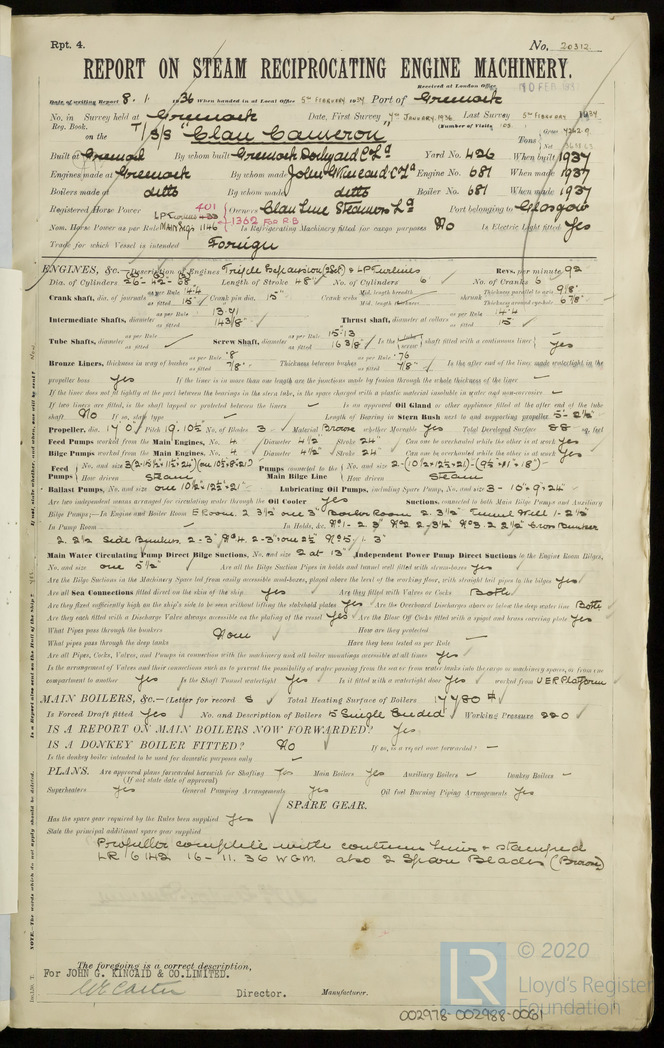 Rpt. 4. No. 20312
REPORT ON STEAM RECIPROCATING ENGINE MACHINERY.
Received at London Office 10 FEB 193
Date of writing Report 8. 1. 1936 When handed in at Local Office 5TH FEBRUARY 1937 Port of Greenock
No. in Survey held at Greenock Date, First Survey JANUARY, 1936 Last Survey 5TH FEBRUARY 1937
Reg. Book. (Number of Visits
on the T/S/S "Clan Cameron" Tons Gross Net
Built at Greenock By whom built Greenock Dockyard Co Ld Yard No. 426 When built 1937
Engines made at Greenock By whom made John G Kincaid & Co Ld Engine No. 681 When made 1937
Boilers made at ditto By whom made ditto Boiler No. 681 When made 1937
Registered Horse Power Owners Clan Line Steamers Ld Port belonging to Glasgow
401
LP Turbines 433
Nom. Horse Power as per Rule Main Engs 1146 = 1362 For R.B Is Refrigerating Machinery fitted for cargo purposes No Is Electric Light fitted Yes
Trade for which Vessel is intended Foreign
ENGINES, &c.—Description of Engines Triple Expansion (2 Sets) & LP Turbines Revs. per minute 92
Dia. of Cylinders 26-42-68 Length of Stroke 48" No. of Cylinders 6 No. of Cranks 6
Crank shaft, dia. of journals as per Rule 14.4 as fitted 15" Crank pin dia. 15" Crank webs Mid. length breadth Mid. length thickness shrunk Thickness parallel to axis 9 1/8" Thickness around eye-hole 6 7/8"
Intermediate Shafts, diameter as per Rule 13.71 as fitted 14 3/8" Thrust shaft, diameter at collars as per Rule 14.4 as fitted 15"
Tube Shafts, diameter as per Rule as fitted Screw Shaft, diameter as per Rule 15.13 as fitted 16 3/8" Is the tube screw shaft fitted with a continuous liner Yes
Bronze Liners, thickness in way of bushes as per Rule .8 as fitted 7/8" Thickness between bushes as per Rule .76 as fitted 7/8" Is the after end of the liner made watertight in the
propeller boss Yes If the liner is in more than one length are the junctions made by fusion through the whole thickness of the liner
If the liner does not fit tightly at the part between the bearings in the stern tube, is the space charged with a plastic material insoluble in water and non-corrosive
If two liners are fitted, is the shaft lapped or protected between the liners Is an approved Oil Gland or other appliance fitted at the after end of the tube
shaft No If so, state type Length of Bearing in Stern Bush next to and supporting propeller 5- 2 1/2"
Propeller, dia. 17'0" Pitch 19. 10 1/2 No. of Blades 3 Material Bronze whether Moveable Yes Total Developed Surface 88 sq. feet
Feed Pumps worked from the Main Engines, No. 4 Diameter 4 1/2" Stroke 24" Can one be overhauled while the other is at work Yes
Bilge Pumps worked from the Main Engines, No. 4 Diameter 4 1/2" Stroke 24" Can one be overhauled while the other is at work Yes
Feed Pumps No. and size Pumps connected to the Main Bilge Line No. and size
How driven Steam How driven Steam
Ballast Pumps, No. and size one 10 1/2 × 12 1/2 × 21" Lubricating Oil Pumps, including Spare Pump, No. and size 3- 10 × 9 × 24"
Are two independent means arranged for circulating water through the Oil Cooler Yes Suctions, connected to both Main Bilge Pumps and Auxiliary
Bilge Pumps;—In Engine and Boiler Room E Room. 2 3 1/2 one 3" Boiler Room 2. 3 1/2 Tunnel Well 1- 2 1/2"
In Pump Room In Holds, &c. No 1 - 2 3" No 2 2-3 1/2" No 3. 2 2 1/2 Cross Bunker
2. 2 1/2 Side Bunkers. 2-3" No 4. 2-3" one 2 1/2 No 5 1. 3"
Main Water Circulating Pump Direct Bilge Suctions, No. and size 2 at 13" Independent Power Pump Direct Suctions to the Engine Room Bilges,
No. and size one 5 1/2" Are all the Bilge Suction Pipes in holds and tunnel well fitted with strum-boxes Yes
Are the Bilge Suctions in the Machinery Space led from easily accessible mud-boxes, placed above the level of the working floor, with straight tail pipes to the bilges Yes
Are all Sea Connections fitted direct on the skin of the ship Yes Are they fitted with Valves or Cocks Both
Are they fixed sufficiently high on the ship's side to be seen without lifting the stokehold plates Yes Are the Overboard Discharges above or below the deep water line Both
Are they each fitted with a Discharge Valve always accessible on the plating of the vessel Yes Are the Blow Off Cocks fitted with a spigot and brass covering plate Yes
What Pipes pass through the bunkers None How are they protected
What pipes pass through the deep tanks Have they been tested as per Rule
Are all Pipes, Cocks, Valves, and Pumps in connection with the machinery and all boiler mountings accessible at all times Yes
Is the arrangement of Valves and their connections such as to prevent the possibility of water passing from the sea or from water tanks into the cargo or machinery spaces, or from one
compartment to another Yes Is the Shaft Tunnel watertight Yes Is it fitted with a watertight door Yes worked from U.E.R Platform
MAIN BOILERS, &c.—(Letter for record S Total Heating Surface of Boilers 17480
Is Forced Draft fitted Yes No. and Description of Boilers 5 Single Ended Working Pressure 220
IS A REPORT ON MAIN BOILERS NOW FORWARDED? Yes
IS A DONKEY BOILER FITTED? No If so, is a report now forwarded?
Is the donkey boiler intended to be used for domestic purposes only
PLANS. Are approved plans forwarded herewith for Shafting Yes Main Boilers Yes Auxiliary Boilers Donkey Boilers
(If not state date of approval)
Superheaters Yes General Pumping Arrangements Yes Oil fuel Burning Piping Arrangements Yes
SPARE GEAR.
Has the spare gear required by the Rules been supplied Yes
State the principal additional spare gear supplied
Propeller complete with continuous liner & stamped
LR 6142 16-11.36 W G M. also 2 Spare Blades (Bronze)
The foregoing is a correct description,
For JOHN G. KINCAID & CO. LIMITED.
Director. Manufacturer.
© 2020
LR Lloyd's Register
Foundation
002978-002988-0061